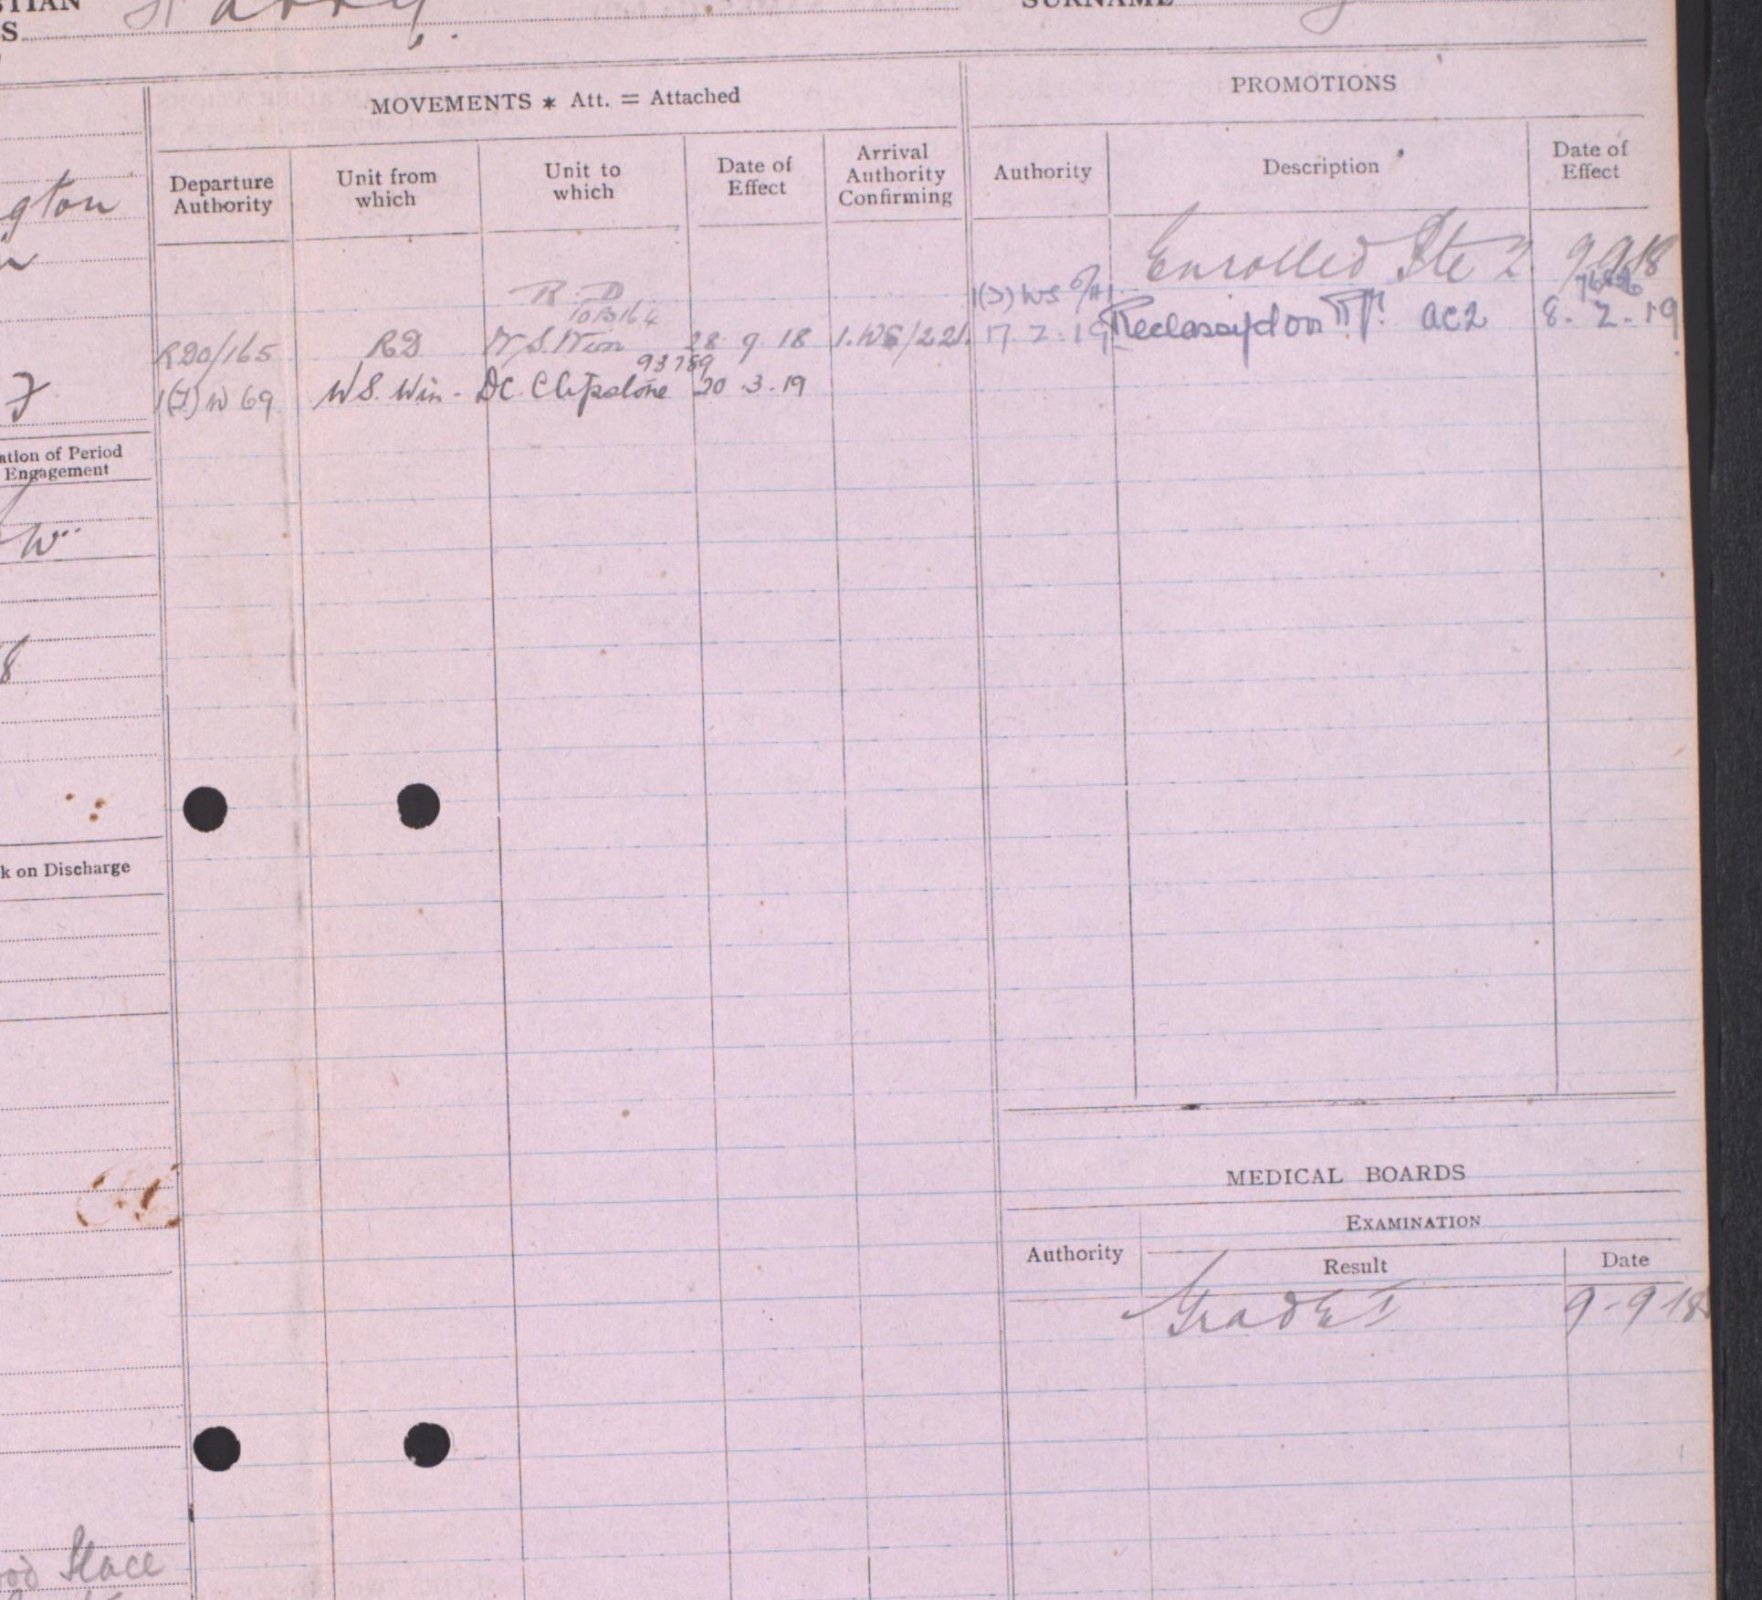 STIAN Harry. SURNAME
S
MOVEMENTS * Att. = Attached
PROMOTIONS
Departure Authority
Unit from which
Unit to which
Date of Effect
Arrival Authority Confirming
Authority
Description
Date of Effect
gton
Enrolled Pte 2 9 9 18
R. D
1(T) WS
RD0/165 RD W.S. Win 28 9 18 1.WS/221. 17. 2. 19 AC2 8. 2. 19
93789
1(T) W 69 WS. Win - DC. Clipstone 20 .3.19
ation of Period
Engagement
W
8
k on Discharge
MEDICAL BOARDS
EXAMINATION
Authority
Result
Date
Grade I 9-9-18
Place